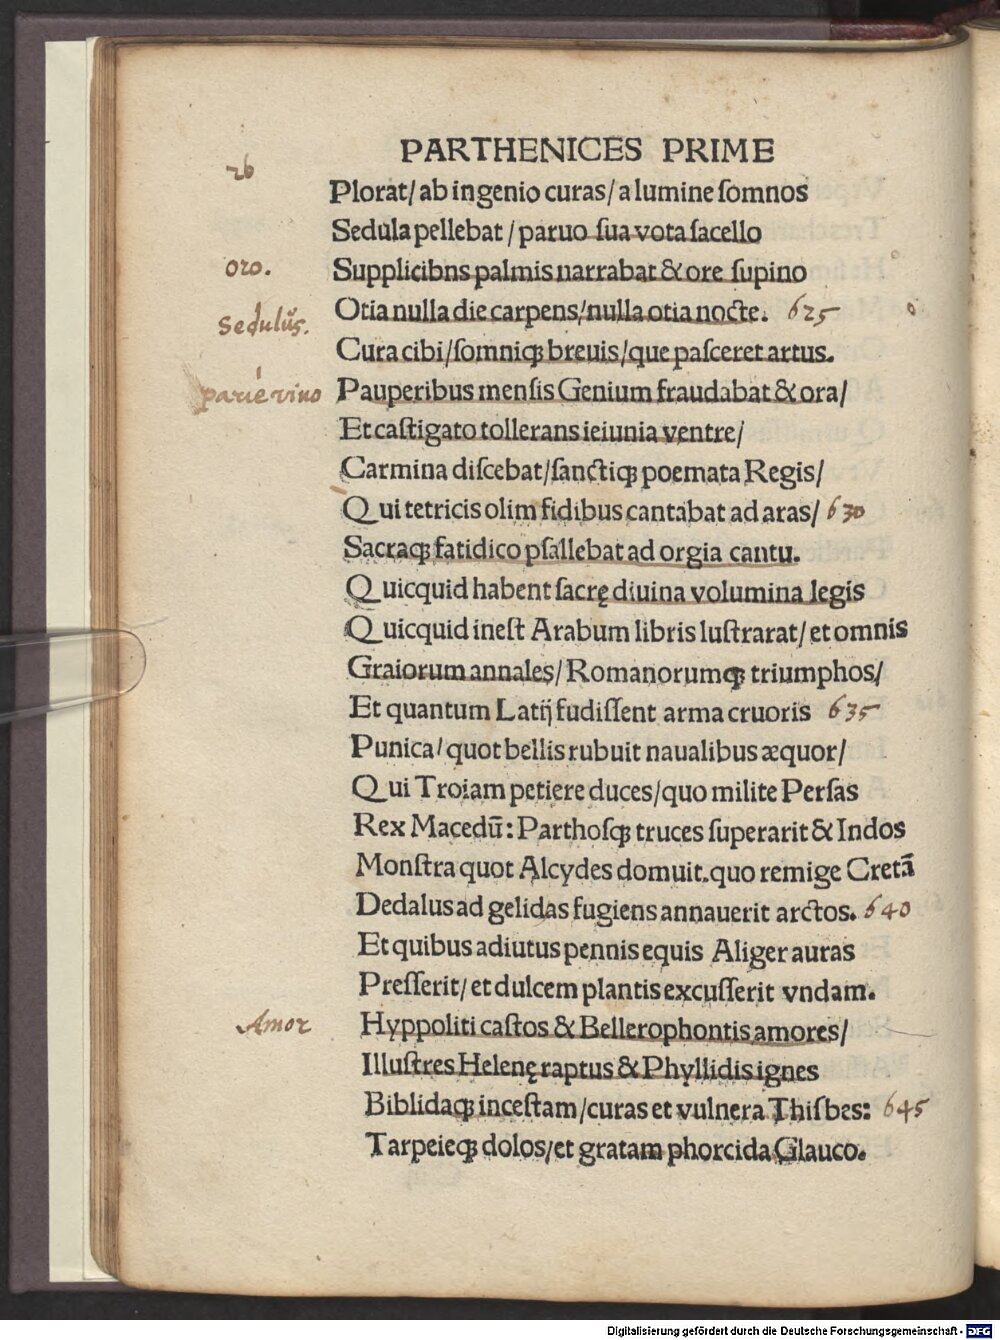 PARTHENICES PRIME
26
Plorat/ ab ingenio curas/ a lumine ſomnos
Sedula pellebat / paruo ſua vota ſacello
oro.
Supplicibns palmis narrabat & ore ſupino
Otia nulla die carpens/nulla otia nocte. 625
Sedulus.
Cura cibi/ſomniqꝫ breuis/que paſceret artus.
Pauperibus menſis Genium fraudabat & ora/
Et caſtigato tollerans ieiunia ventre/
Carmina diſcebat/ſanctiqꝫ poemata Regis/
Qui tetricis olim fidibus cantabat ad aras/ 630
Sacraqꝫ fatidico pſallebat ad orgia cantu.
Quicquid habent ſacrę diuina volumina legis
Quicquid ineſt Arabum libris luſtrarat/ et omnis
Graiorum annales/ Romanorumqꝫ triumphos/
Et quantum Latij fudiſſent arma cruoris 635
Punica/ quot bellis rubuit naualibus æquor/
Qui Troiam petiere duces/quo milite Perſas
Rex Macedū: Parthoſqꝫ truces ſuperarit & Indos
Monſtra quot Alcydes domuit.quo remige Cretā
Dedalus ad gelidas fugiens annauerit arctos. 640
Et quibus adiutus pennis equis Aliger auras
Preſſerit/ et dulcem plantis excuſſerit vndam.
Amor
Hyppoliti caſtos & Bellerophontis amores/
Illuſtres Helenę raptus & Phyllidis ignes
Biblidaqꝫ inceſtam/curas et vulnera Thiſbes: 645
Tarpeieqꝫ dolos/et gratam phorcida Glauco.
Digitalisierung gefördert durch die Deutsche Forschungsgemeinschaft - DFG